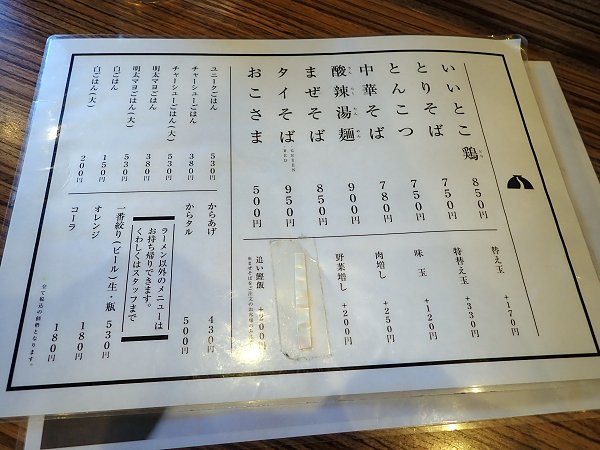 いいとこ鶏 850円
とりそば 750円
とんこつ 750円
中華そば 780円
酸辣湯麺 900円
まぜそば 850円
タイそば GREEN RED 950円
おこさま 500円
替え玉 +170円
特替え玉 +330円
味玉 +120円
肉増し +250円
野菜増し +200円
追い鰹飯 +200円
ユニークごはん 530円
チャーシューごはん 380円
チャーシューごはん(大) 530円
明太マヨごはん 380円
明太マヨごはん(大) 530円
白ごはん 150円
白ごはん(大) 200円
からあげ 430円
からタル 500円
ラーメン以外のメニューは
お持ち帰りできます。
くわしくはスタッフまで
一番絞り(ビール)生・瓶 530円
オレンジ 180円
コーラ 180円
全て税込の価格となります。